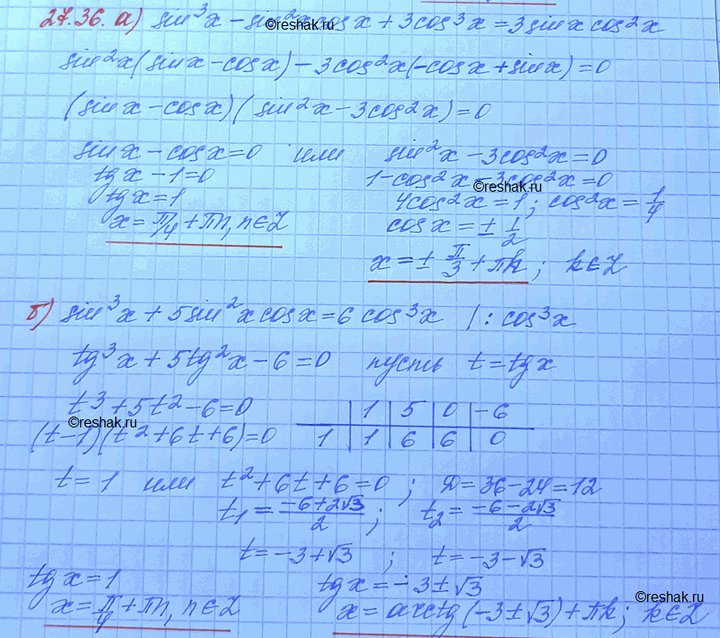 27.36. а) sin³x - sin²x cosx + 3cos³x = 3sinx cos²x
©reshak.ru
sin²x(sinx - cosx) - 3cos²x(-cosx + sinx) = 0
(sinx - cosx)(sin²x - 3cos²x) = 0
sinx - cosx = 0 или sin²x - 3cos²x = 0
tgx - 1 = 0 1 - cos²x - 3cos²x = 0
©reshak.ru
tgx = 1 4cos²x = 1; cos²x = 1/4
x = π/4 + πn, n∈Z cosx = ± 1/2
x = ± π/3 + πk; k∈Z
б) sin³x + 5sin²x cosx = 6cos³x | : cos³x
©reshak.ru
tg³x + 5tg²x - 6 = 0 пусть t = tgx
t³ + 5t² - 6 = 0 1 5 0 -6
©reshak.ru
(t-1)(t² + 6t + 6) = 0 1 1 6 6 0
t = 1 или t² + 6t + 6 = 0; D = 36 - 24 = 12
t₁ = (-6+2√3)/2; t₂ = (-6-2√3)/2
t = -3+√3; t = -3-√3
tgx = 1 tgx = -3±√3
©reshak.ru
x = π/4 + πn, n∈Z x = arctg(-3±√3) + πk; k∈Z